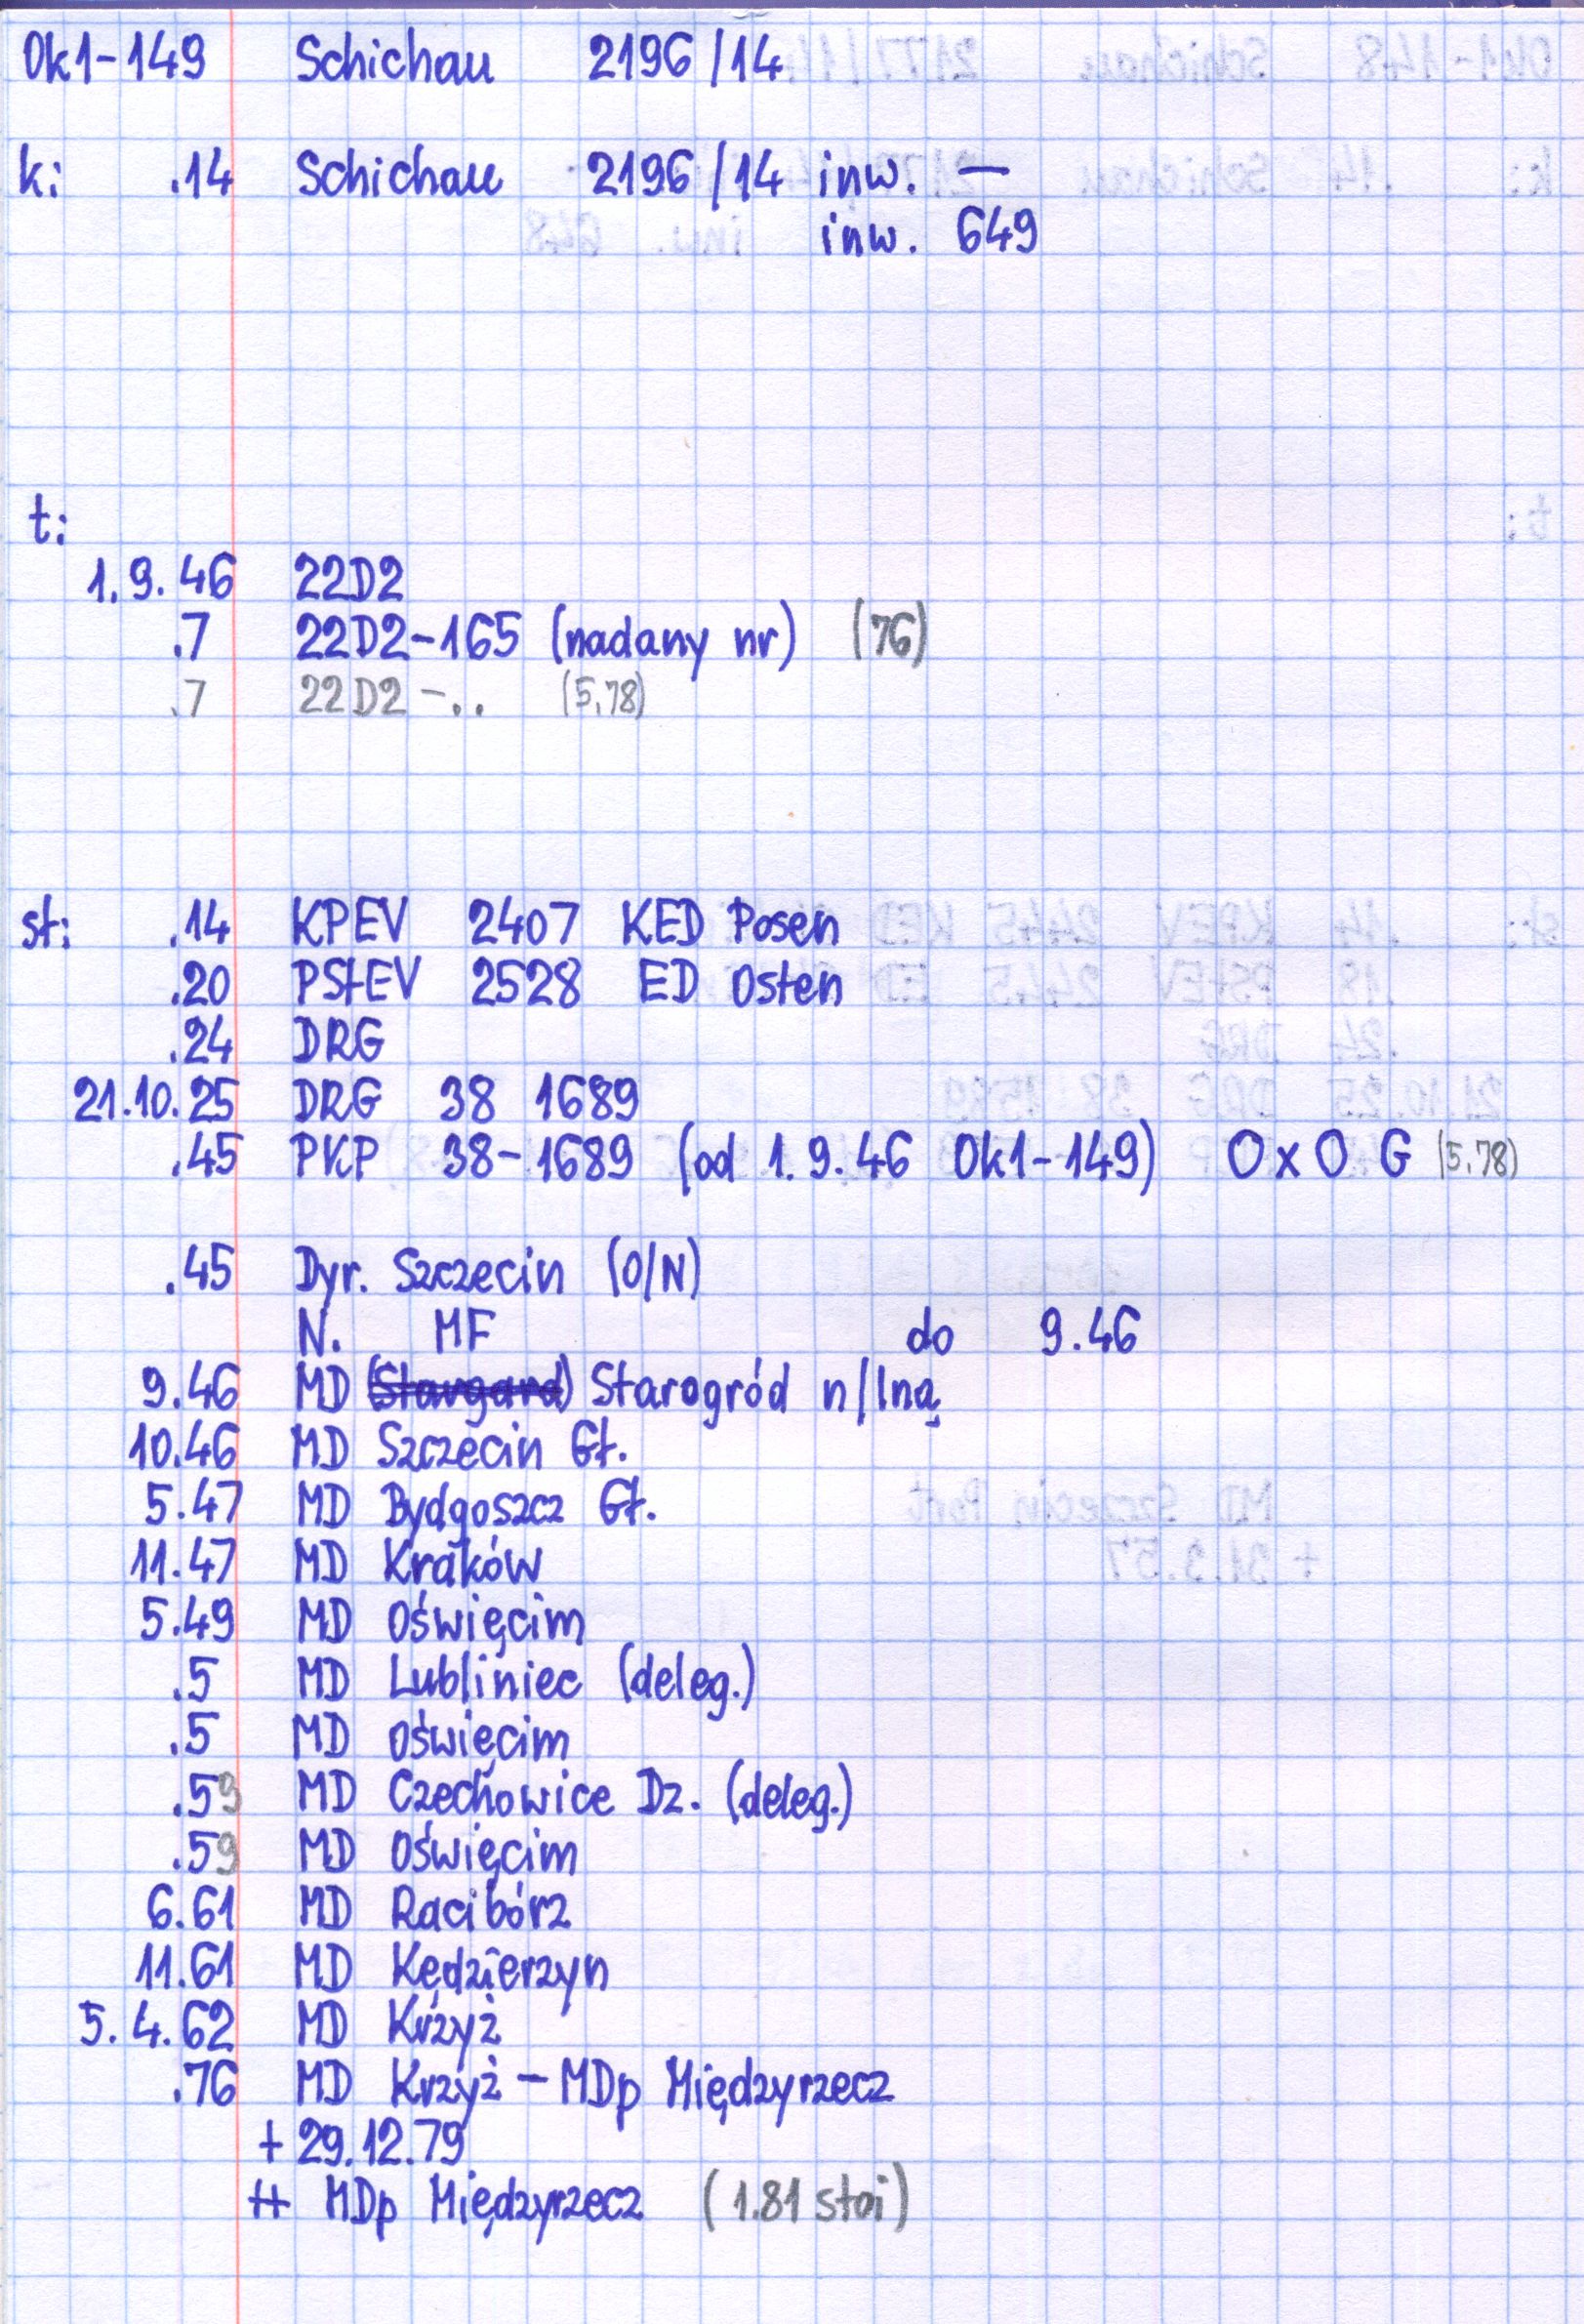 Ok1-149 Schichau 2196/14
k: .14 Schichau 2196/14 inw. —
inw. 649
t:
1.9.46 22D2
.7 22D2-165 (nadany nr) (76)
.7 22D2-.. (5,78)
st: .14 KPEV 2407 KED Posen
.20 PStEV 2528 ED Osten
.24 DRG
21.10.25 DRG 38 1689
.45 PKP 38-1689 (od 1.9.46 Ok1-149) O x O G (5,78)
.45 Dyr. Szczecin (O/N)
N. MF do 9.46
9.46 MD (Stargard) Starogród n/Iną
10.46 MD Szczecin Gł.
5.47 MD Bydgoszcz Gł.
11.47 MD Kraków
5.49 MD Oświęcim
.5 MD Lubliniec (deleg.)
.5 MD Oświęcim
.59 MD Czechowice Dz. (deleg.)
.59 MD Oświęcim
6.61 MD Racibórz
11.61 MD Kędzierzyn
5.4.62 MD Krzyż
.76 MD Krzyż - MDp Międzyrzecz
+ 29.12.79
++ MDp Międzyrzecz (1.81 stoi)